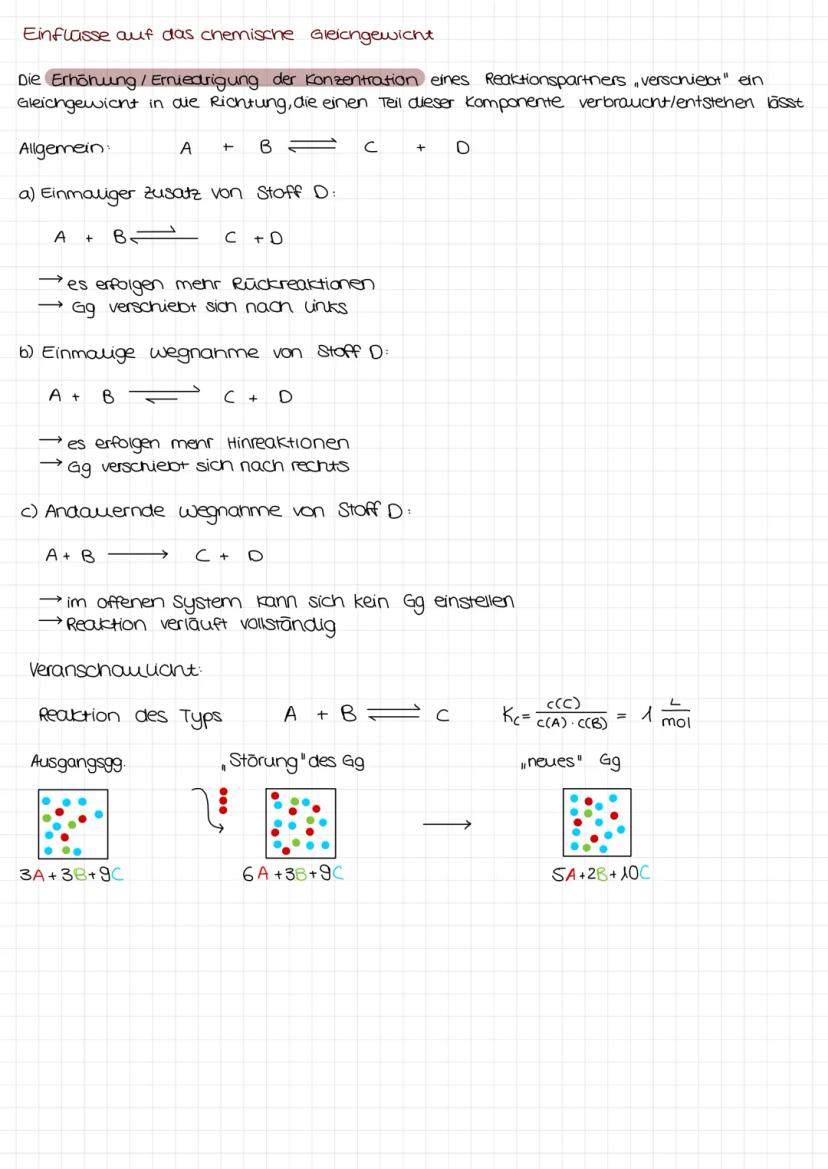 Einflüsse auf das chemische Gleichgewicht
Die Erhöhung / Erniedrigung der Konzentration eines Reaktionspartners „verschiebt" ein
Gleichgewicht in die Richtung, die einen Teil dieser Komponente verbraucht/entstehen lässt
Allgemein: A + B ⇌ C + D
a) Einmaliger Zusatz von Stoff D:
A + B ⇌ C + D
→ es erfolgen mehr Rückreaktionen
→ Gg verschiebt sich nach links
b) Einmalige Wegnahme von Stoff D:
A + B ⇌ C + D
→ es erfolgen mehr Hinreaktionen
→ Gg verschiebt sich nach rechts
c) Andauernde Wegnahme von Stoff D:
A + B → C + D
→ im offenen System kann sich kein Gg einstellen
→ Reaktion verläuft vollständig
Veranschaulicht:
Reaktion des Typs A + B ⇌ C Kc = c(C) / c(A) · c(B) = 1 L/mol
Ausgangsgg. „Störung" des Gg „neues" Gg
3A + 3B + 9C 6A + 3B + 9C 5A + 2B + 10C